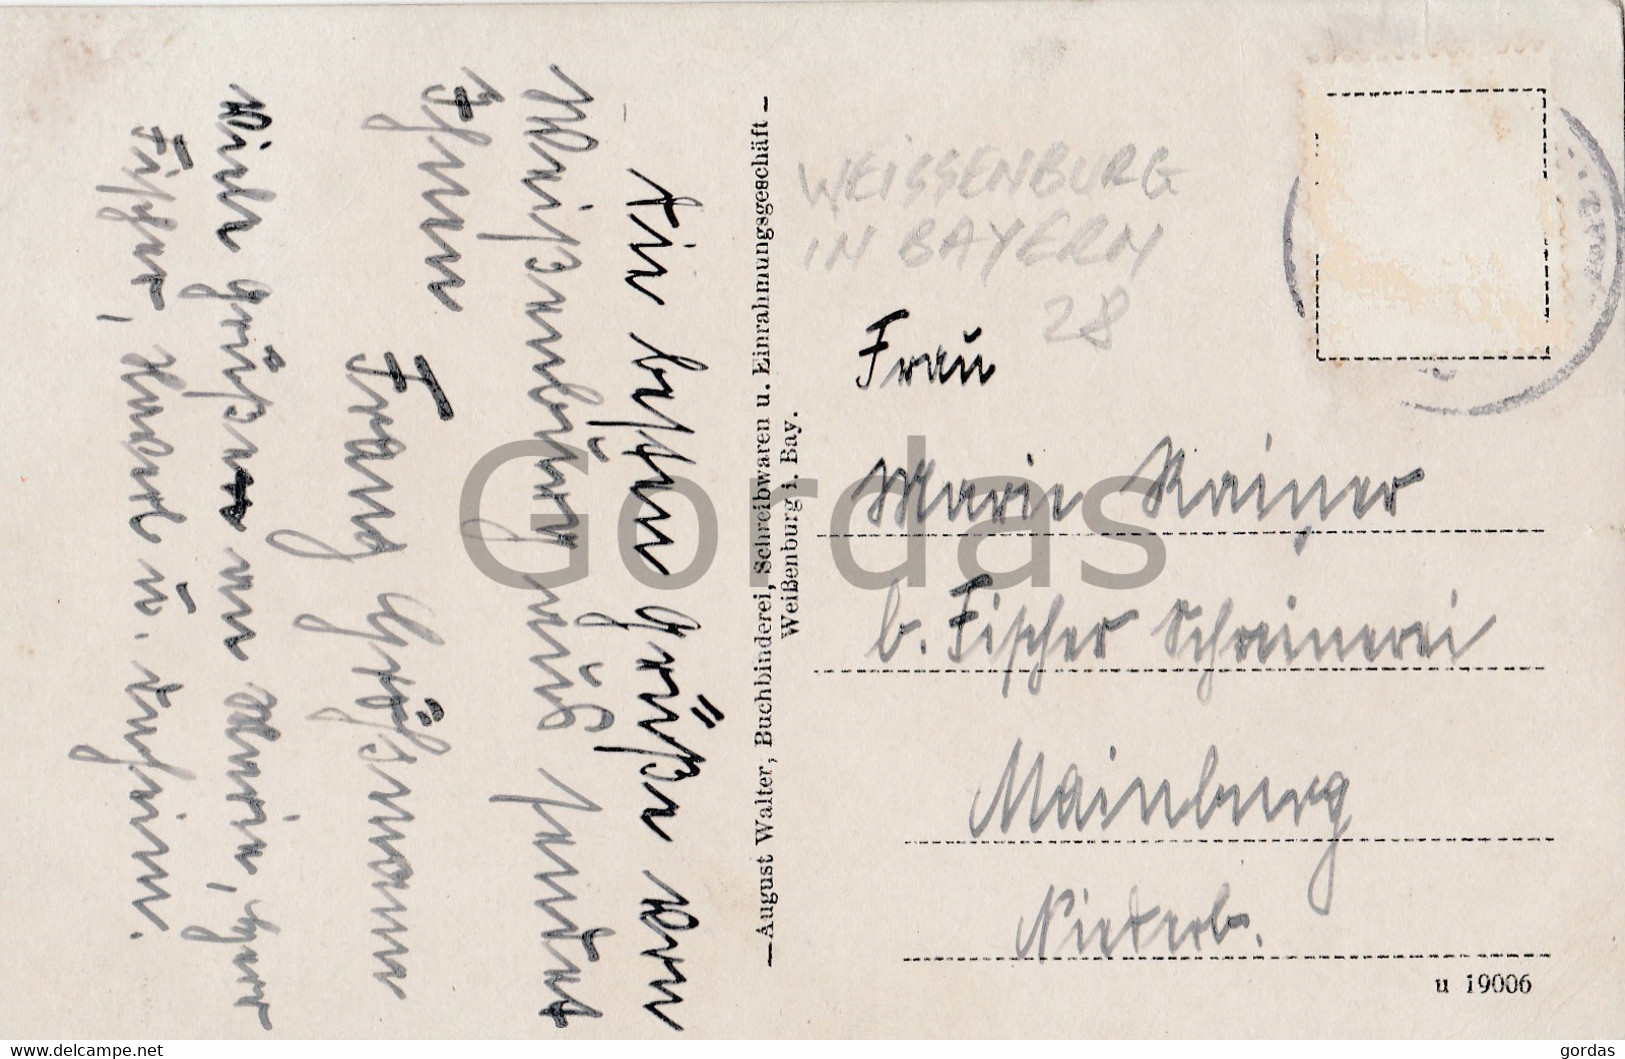 Die besten Grüße von
Weißenburg aus sendet
Ihnen
Franz Größmann
Viele Grüße an
Fischer, u.
—August Walter, Buchbinderei, Schreibwaren u. Einrahmungsgeschäft —
Weißenburg i. Bay.
WEISSENBURG
IN BAYERN
28
Frau
Marie Rainer
b. Fischer Schreinerei
Mainburg
Niederb.
u 19006
Gordas
www.delcampe.net
gordas